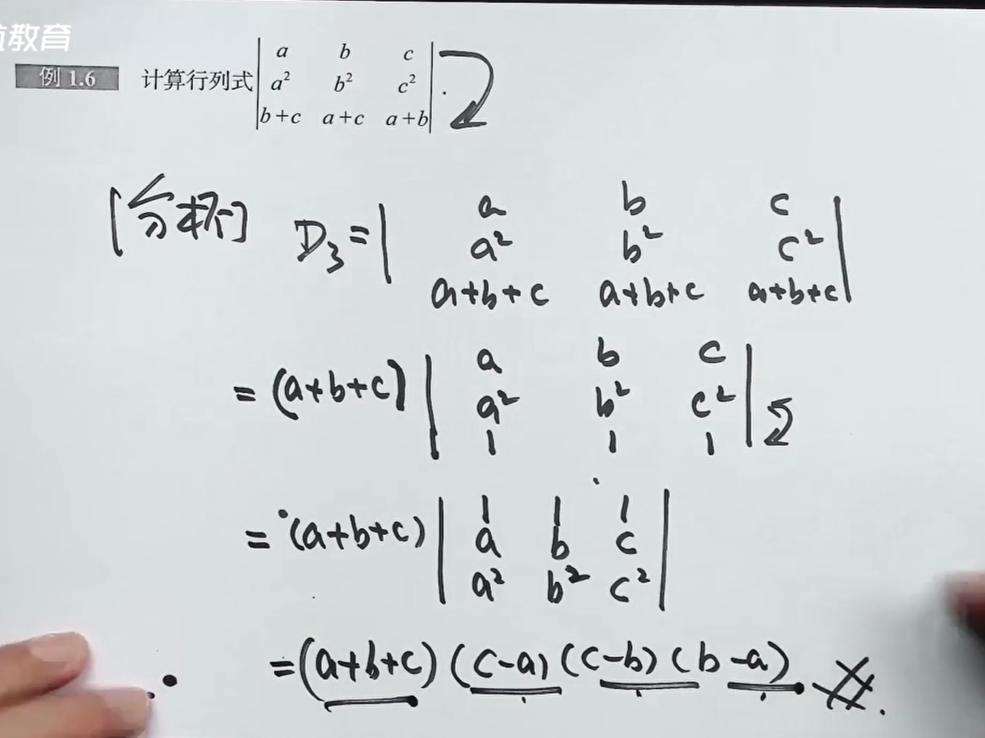 航教育
例 1.6 计算行列式 | a b c |
| a² b² c² | .
| b+c a+c a+b |
[分析] D₃ = | a b c |
| a² b² c² |
| a+b+c a+b+c a+b+c |
= (a+b+c) | a b c |
| a² b² c² |
| 1 1 1 |
= (a+b+c) | 1 1 1 |
| a b c |
| a² b² c² |
= (a+b+c) (c-a) (c-b) (b-a)